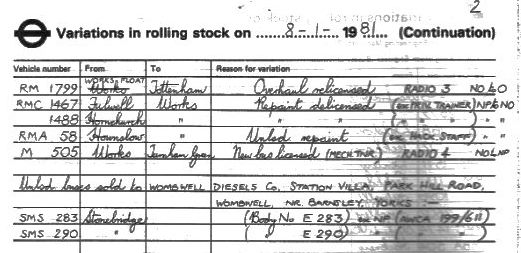 2
Variations in rolling stock on ....... 8-1- ...... 1981... (Continuation)
Vehicle number From To Reason for variation
RM 1799 WORKS FLOAT Works Tottenham Overhaul relicensed RADIO 3 NO LO
RMC 1467 Fulwell Works Repaint delicensed (EX PRIV. TRAINER) NO
1488 Hornchurch " " " ( " " ) " "
RMA 58 Hounslow " Unlsd repaint (EX HACK. STAFF) " "
M 505 Works Turnham Green New bus licensed (MECH. TNR.) RADIO 4 NO LNP
Unlsd buses sold to WOMBWELL DIESELS Co, STATION VILLA, PARK HILL ROAD,
WOMBWELL, NR. BARNSLEY, YORKS :—
SMS 283 Stonebridge (Body No E 283) ex NP (AWCA 199/611)
SMS 290 " ( " E 290) " ( " " )